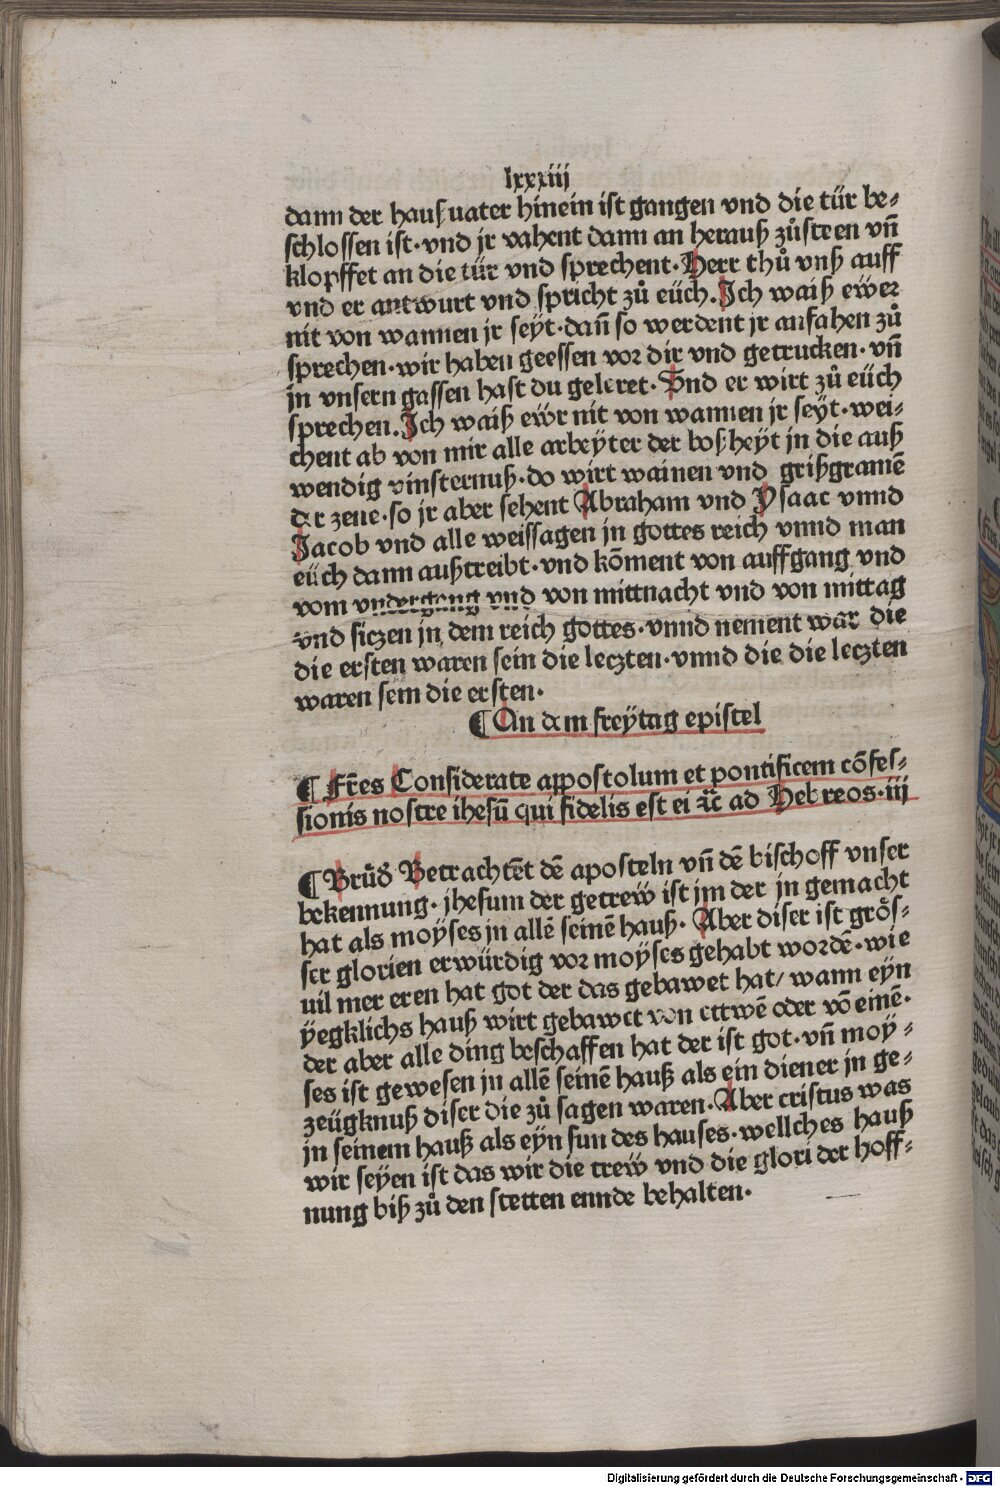 lxxxiii
dann der hauß uater hinein ist gangen vnd die tür be-
schlossen ist· vnd jr vahent dann an herauß zůsteen vñ
klopffet an die tür vnd sprechent· Herr thů vnß auff
vnd er antwurt vnd spricht zů eüch. Ich waiß ewer
nit von wannen jr seyt· dañ so werdent jr anfahen zů
sprechen· wir haben geessen vor dir vnd getrucken· vñ
in vnsern gassen hast du geleret· Vnd er wirt zů eüch
sprechen. Ich waiß ewr nit von wannen jr seyt· wei-
chent ab von mir alle arbeyter der boßheyt in die auß
wendig vinsternuß· do wirt wainen vnd grißgramē
der zene· so jr aber sehent Abraham vnd Ysaac vnnd
Jacob vnd alle weissagen in gottes reich vnnd man
eüch dann außtreibt· vnd kōment von auffgang vnd
vom vndergang vnd von mittnacht vnd von mittag
vnd siczen in dem reich gottes· vnnd nement war die
die ersten waren sein die leczten· vnnd die die leczten
waren sein die ersten·
¶ An dem freytag epistel
¶ Fr̄es Considerate appostolum et pontificem cōfes-
sionis nostre ihesū qui fidelis est ei ꝛc̄ ad Hebreos· iii
¶ Brůd' Betrachtēt dē aposteln vñ dē bischoff vnser
bekennung· jhesum der getrew ist jm der jn gemacht
hat als moyses in allē seinē hauß· Aber diser ist grȯs-
ser glorien erwürdig vor moyses gehabt wordē· wie
uil mer eren hat got der das gebawet hat/ wann eyn
yegklichs hauß wirt gebawet von ettwē oder vō einē·
der aber alle ding beschaffen hat der ist got· vñ moy-
ses ist gewesen in allē seinē hauß als ein diener in ge-
zeügknuß diser die zů sagen waren· Aber cristus was
in seinem hauß als eyn sun des hauses· wellches hauß
wir seyen ist das wir die trew vnd die glori der hoff-
nung biß zů den stetten ennde behalten·
Digitalisierung gefördert durch die Deutsche Forschungsgemeinschaft - DFG